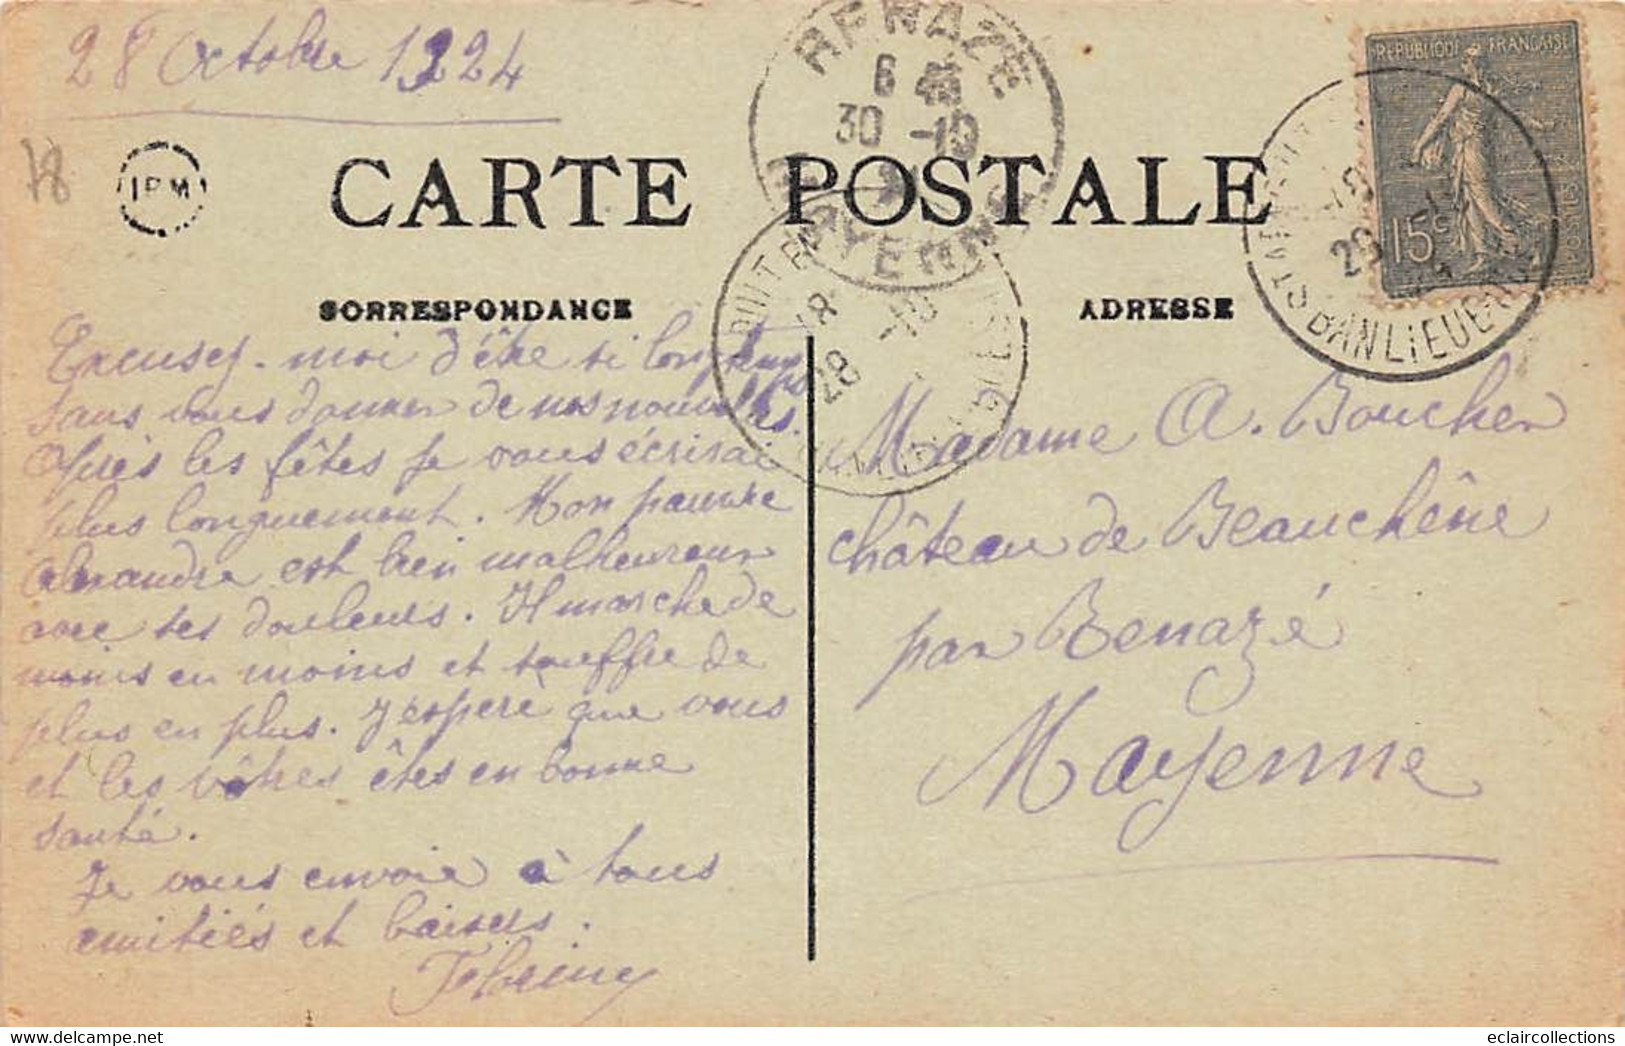 28 Octobre 1924
78
IPM
CARTE POSTALE
CORRESPONDANCE
ADRESSE
RENAZE
6 45
30 -10
MAYENNE
PUTEAUX
18
28 -10
ST BANLIEUE
18
28
REPUBLIQUE FRANÇAISE
15c
POSTES
Excusez-moi d'être si longtemps
sans vous donner de nos nouvelles.
Après les fêtes je vous écrirai
plus longuement. Mon pauvre
Alexandre est bien malheureux
avec ses douleurs. Il marche de
moins en moins et souffre de
plus en plus. J'espère que vous
et les vôtres êtes en bonne
santé.
Je vous envoie à tous
amitiés et baisers.
Madame A. Boucher
château de Beauchêne
par Renazé
Mayenne
eclaircollections